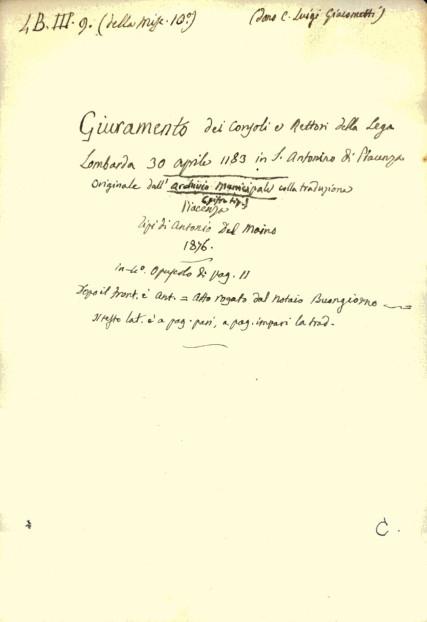 4 B. III. 9. (della Misc. 10ª) (dono C. Luigi Giacometti)
Giuramento dei Consoli e Rettori della Lega
Lombarda 30 aprile 1183 in S. Antonino di Piacenza
Originale dall' archivio Municipale colla traduzione
Piacenza
Tipi di Antonio Del Maino
1876.
in-4º. Opuscolo di pag. 11
Dopo il front. è Ant. = Atto rogato dal Notaio Buongiorno =
Il testo lat. è a pag. pari, a pag. impari la trad.
C.